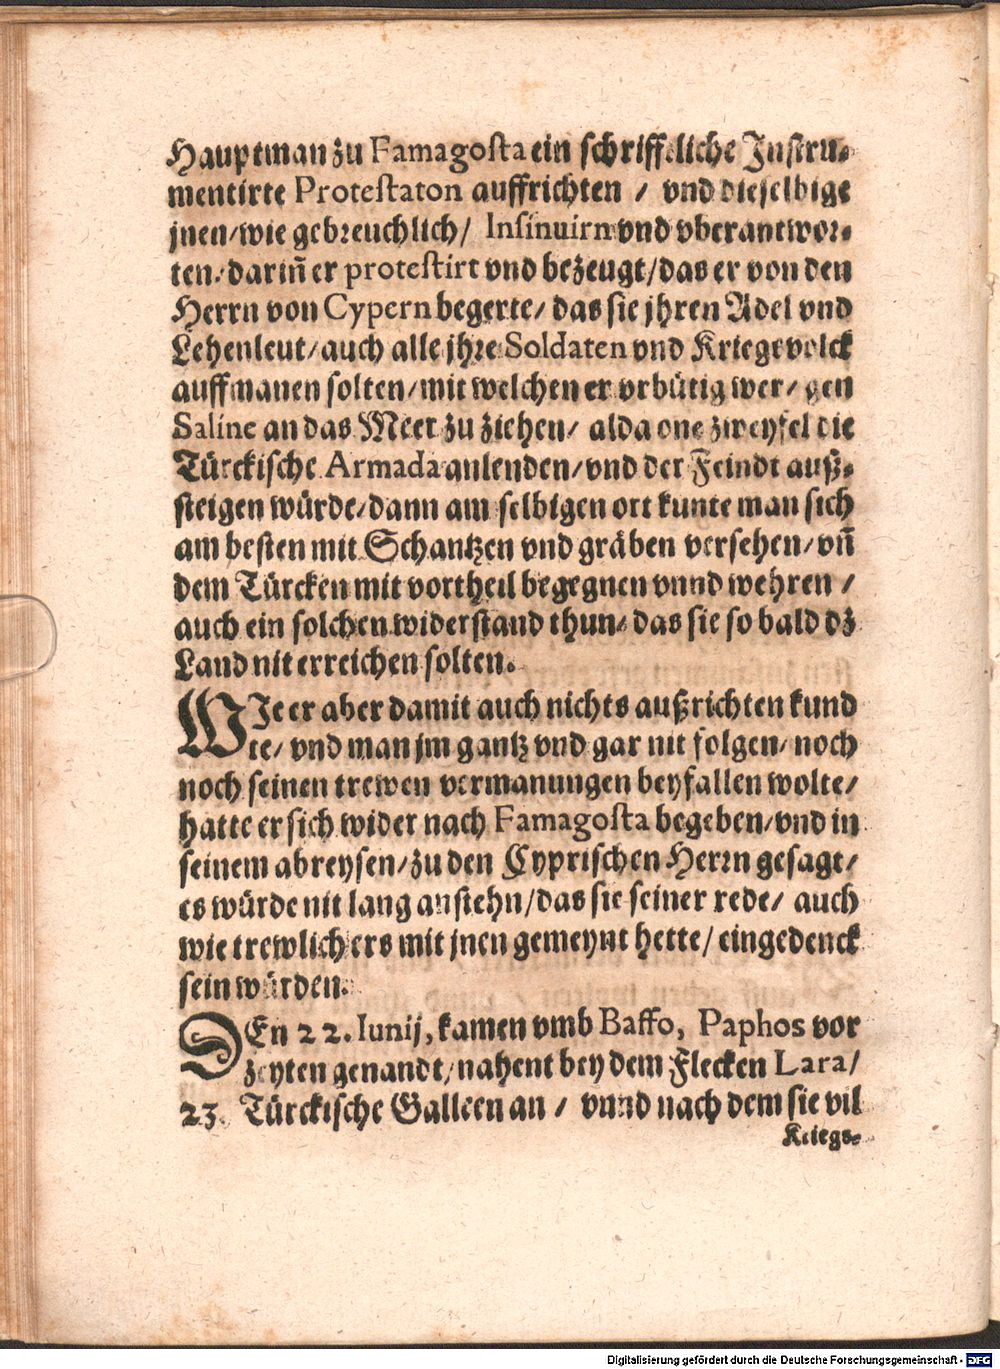 Hauptman zu Famagosta ein schrifftliche Instru-
mentirte Protestaton auffrichten / vnd dieselbige
jnen/wie gebreuchlich/ Insinuirn vnd vberantwor-
ten/darin̄ er protestirt vnd bezeugt/das er von den
Herrn von Cypern begerte/ das sie jhren Adel vnd
Lehenleut/auch alle jhre Soldaten vnd Kriegsvolck
auffmanen solten/mit welchen er vrbütig wer/ gen
Saline an das Meer zu ziehen/ alda one zweyfel die
Türckische Armada anlenden/vnd der Feindt auß-
steigen würde/dann am selbigen ort kunte man sich
am besten mit Schantzen vnd gräben versehen/vn̄
dem Türcken mit vortheil begegnen vnnd wehren /
auch ein solchen widerstand thun/ das sie so bald dz
Land nit erreichen solten.
WIe er aber damit auch nichts außrichten kund
te/ vnd man jm gantz vnd gar nit folgen/ noch
noch seinen trewen vermanungen beyfallen wolte/
hatte er sich wider nach Famagosta begeben/vnd in
seinem abreysen/zu den Cyprischen Herrn gesagt/
es würde nit lang anstehn/das sie seiner rede/ auch
wie trewlich ers mit jnen gemeynt hette/eingedenck
sein würden.
DEn 22. Iunij, kamen vmb Baffo, Paphos vor
zeyten genandt/nahent bey dem Flecken Lara/
23. Türckische Galleen an / vnnd nach dem sie vil
Kriegs-
Digitalisierung gefördert durch die Deutsche Forschungsgemeinschaft - DFG